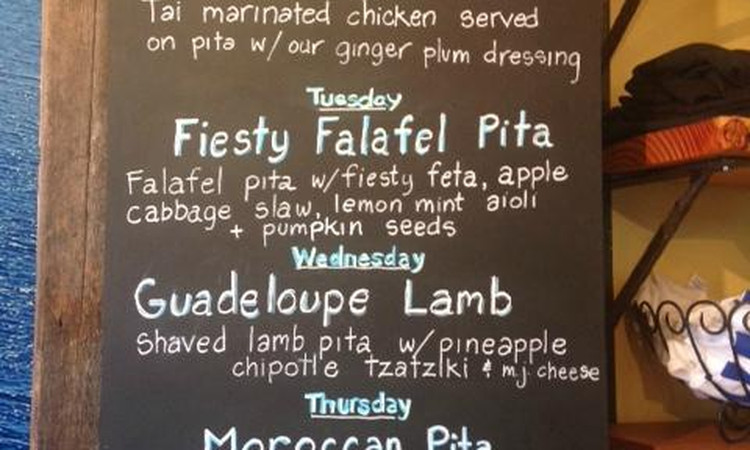 Tai marinated chicken served
on pita w/our ginger plum dressing
Tuesday
Fiesty Falafel Pita
Falafel pita w/fiesty feta, apple
cabbage slaw, lemon mint aioli
+ pumpkin seeds
Wednesday
Guadeloupe Lamb
Shaved lamb pita w/pineapple
chipotle tzatziki & mj cheese
Thursday
Moroccan Pita